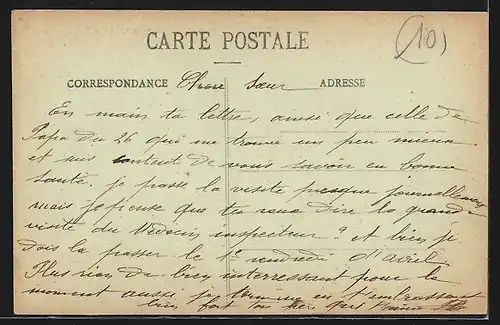 (10)
CARTE POSTALE
CORRESPONDANCE Chère Sœur ADRESSE
En main ta lettre, ainsi que celle de
Papa du 26 qui me trouve un peu mieux
et suis content de vous savoir en bonne
santé. je passe la visite presque journellement
mais je pense que tu veux dire la grande
visite du Médecin inspecteur? et bien je
dois la passer le 1er vendredi d'avril
Plus rien de bien interressant pour le
moment aussi je termine en t'embrassant
bien fort ton frère qui t'aime